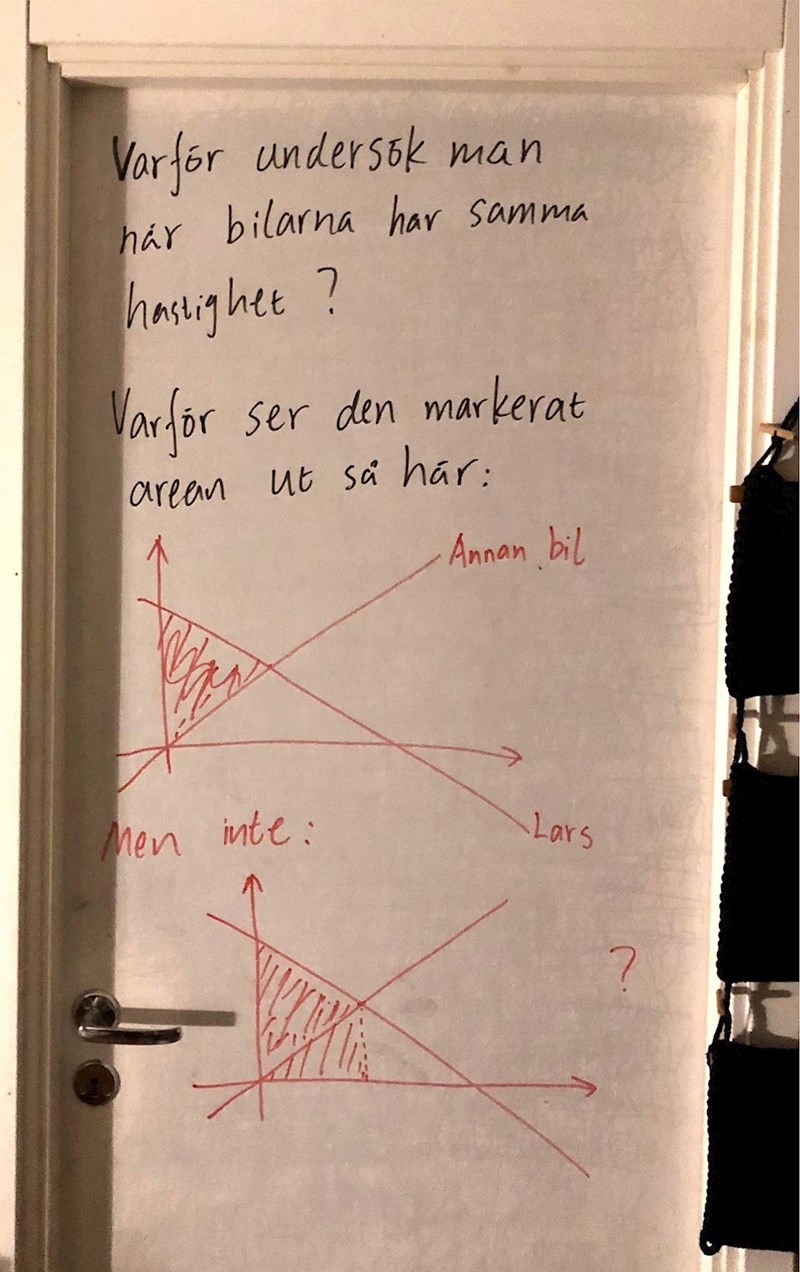 Varför undersök man
när bilarna har samma
hastighet ?
Varför ser den markerat
arean ut så här:
Annan bil
Lars
Men inte:
?